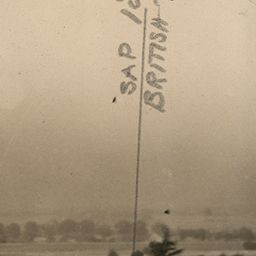 SAP
BRITISH